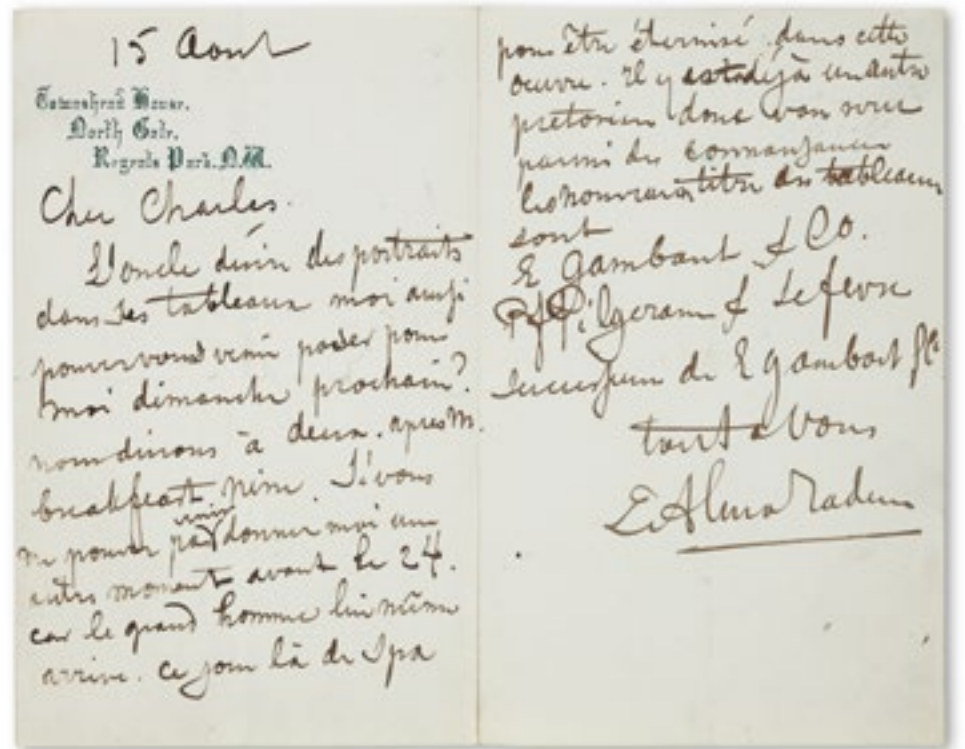 15 Aout
Townshend House,
North Gate,
Regents Park. N.W.
Cher Charles.
L'oncle desire des portraits
dans ses tableaux moi aussi
pouvez vous venir poser pour
moi dimanche prochain?
nous dinons à deux. apres M.
breakfeast même. Si vous
ne pouvez pas venir donner moi un
autre moment avant le 24.
car le grand homme lui même
arrive. ce jour là de Spa
pour être éternisé dans cette
oeuvre. il y est déjà un autre
pretorien donc vous serez
parmi des connaissances
les nouveaux titre des tableaux
sont
E Gambart & Co.
Pilgeram & Lefevre
successeurs de E Gambart & Co
tout a vous
L Alma Tadema